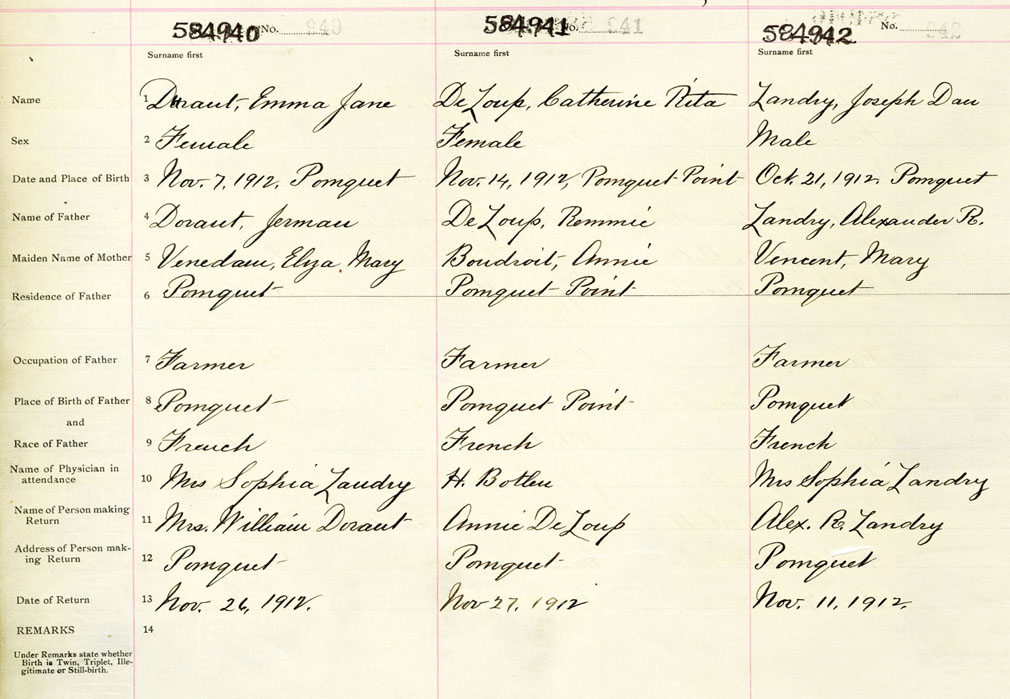 584940 No. 940 584941 No. 941 584942 No. 942
Surname first Surname first Surname first
Name 1 Doraut, Emma Jane De Loup, Catherine Rita Landry, Joseph Dan
Sex 2 Female Female Male
Date and Place of Birth 3 Nov. 7, 1912, Pomquet Nov. 14, 1912, Pomquet Point Oct. 21, 1912. Pomquet
Name of Father 4 Doraut, Jerman De Loup, Remmie Landry, Alexander R.
Maiden Name of Mother 5 Venedam, Eliza Mary Boudroit, Annie Vencent, Mary
Residence of Father 6 Pomquet Pomquet Point Pomquet
Occupation of Father 7 Farmer Farmer Farmer
Place of Birth of Father 8 Pomquet Pomquet Point Pomquet
and
Race of Father 9 French French French
Name of Physician in
attendance 10 Mrs Sophia Landry H. Botten Mrs Sophia Landry
Name of Person making
Return 11 Mrs. William Doraut Annie De Loup Alex. R. Landry
Address of Person mak-
ing Return 12 Pomquet Pomquet Pomquet
Date of Return 13 Nov. 26, 1912. Nov 27, 1912 Nov. 11, 1912.
REMARKS 14
Under Remarks state whether
Birth is Twin, Triplet, Ille-
gitimate or Still-birth.